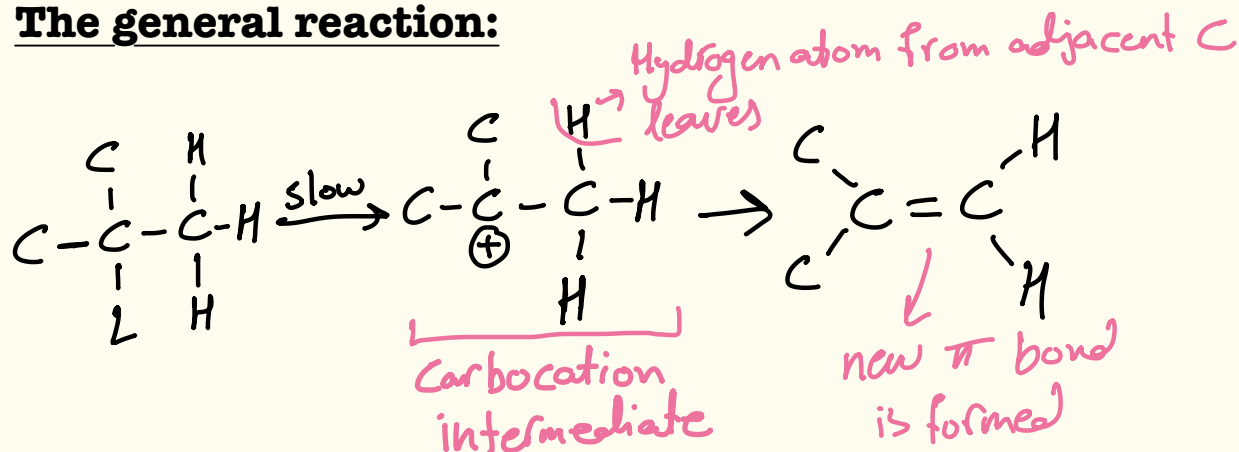 The general reaction:
Hydrogen atom from adjacent C
leaves
C H C H C H
C - C - C - H slow C - C - C - H C = C
L H + H C H
Carbocation
intermediate
new π bond
is formed